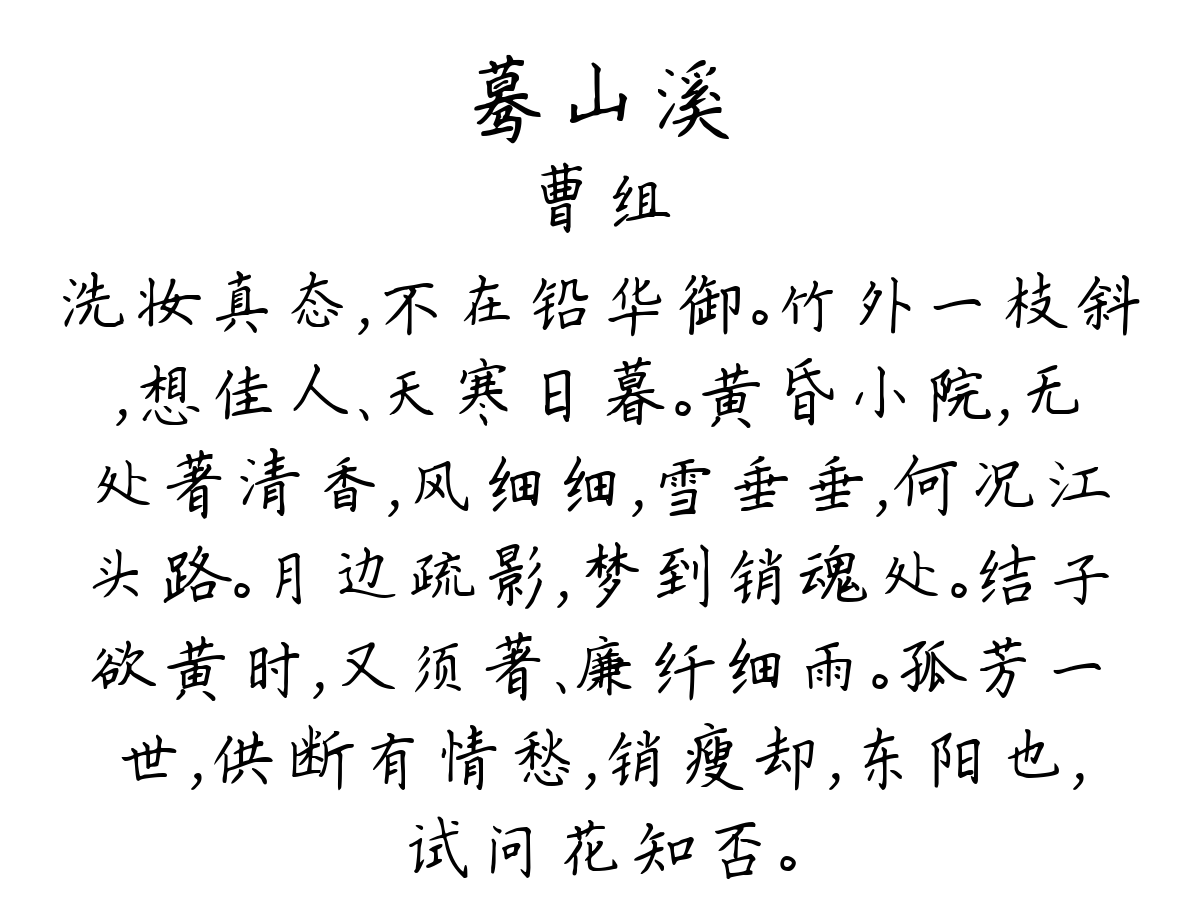 蓦山溪
曹组
洗妆真态,不在铅华御。竹外一枝斜
,想佳人、天寒日暮。黄昏小院,无
处著清香,风细细,雪垂垂,何况江
头路。月边疏影,梦到销魂处。结子
欲黄时,又须著、廉纤细雨。孤芳一
世,供断有情愁,销瘦却,东阳也,
试问花知否。